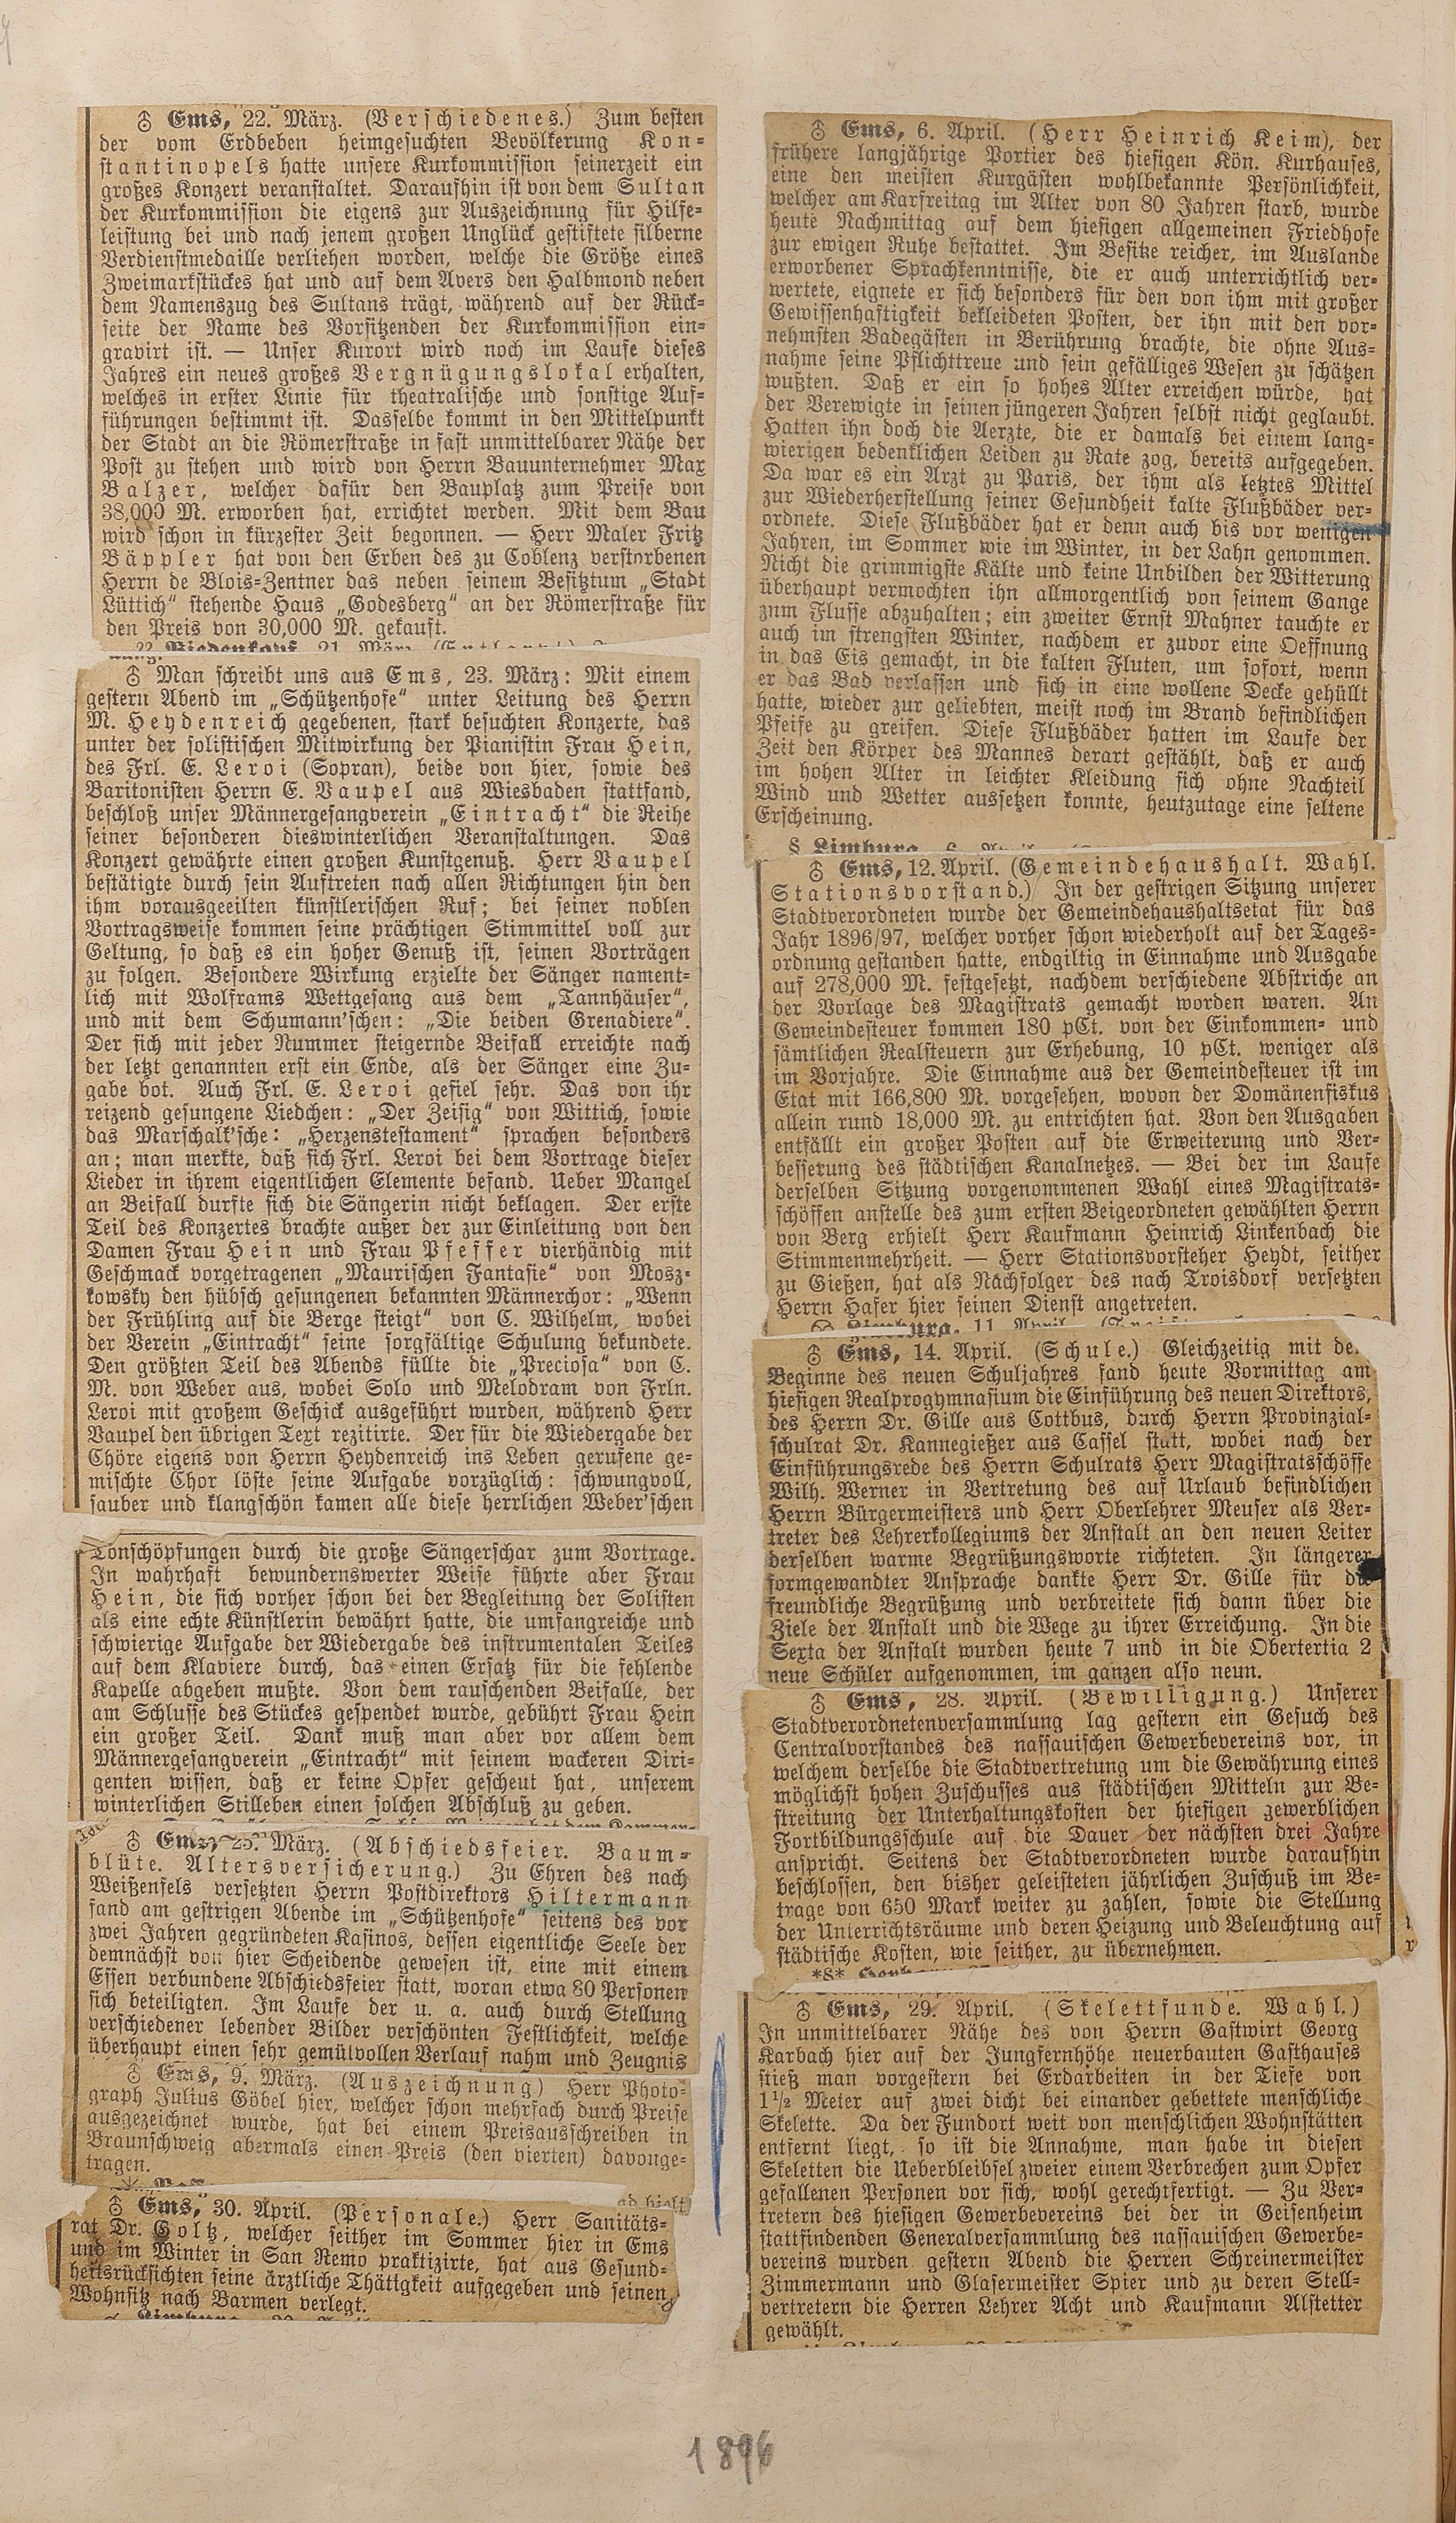 ♁ Ems, 22. März. (Verschiedenes.) Zum besten
der vom Erdbeben heimgesuchten Bevölkerung Kon-
stantinopels hatte unsere Kurkommission seinerzeit ein
großes Konzert veranstaltet. Daraufhin ist von dem Sultan
der Kurkommission die eigens zur Auszeichnung für Hilfe-
leistung bei und nach jenem großen Unglück gestiftete silberne
Verdienstmedaille verliehen worden, welche die Größe eines
Zweimarkstückes hat und auf dem Avers den Halbmond neben
dem Namenszug des Sultans trägt, während auf der Rück-
seite der Name des Vorsitzenden der Kurkommission ein-
gravirt ist. — Unser Kurort wird noch im Laufe dieses
Jahres ein neues großes Vergnügungslokal erhalten,
welches in erster Linie für theatralische und sonstige Auf-
führungen bestimmt ist. Dasselbe kommt in den Mittelpunkt
der Stadt an die Römerstraße in fast unmittelbarer Nähe der
Post zu stehen und wird von Herrn Bauunternehmer Max
Balzer, welcher dafür den Bauplatz zum Preise von
38,000 M. erworben hat, errichtet werden. Mit dem Bau
wird schon in kürzester Zeit begonnen. — Herr Maler Fritz
Bäppler hat von den Erben des zu Coblenz verstorbenen
Herrn de Blois-Zentner das neben seinem Besitztum „Stadt
Lüttich“ stehende Haus „Godesberg“ an der Römerstraße für
den Preis von 30,000 M. gekauft.
Biedenkopf, 21. März.
♁ Man schreibt uns aus Ems, 23. März: Mit einem
gestern Abend im „Schützenhofe“ unter Leitung des Herrn
M. Heydenreich gegebenen, stark besuchten Konzerte, das
unter der solistischen Mitwirkung der Pianistin Frau Hein,
des Frl. E. Leroi (Sopran), beide von hier, sowie des
Baritonisten Herrn E. Vaupel aus Wiesbaden stattfand,
beschloß unser Männergesangverein „Eintracht“ die Reihe
seiner besonderen dieswinterlichen Veranstaltungen. Das
Konzert gewährte einen großen Kunstgenuß. Herr Vaupel
bestätigte durch sein Auftreten nach allen Richtungen hin den
ihm vorausgeeilten künstlerischen Ruf; bei seiner noblen
Vortragsweise kommen seine prächtigen Stimmittel voll zur
Geltung, so daß es ein hoher Genuß ist, seinen Vorträgen
zu folgen. Besondere Wirkung erzielte der Sänger nament-
lich mit Wolframs Wettgesang aus dem „Tannhäuser“,
und mit dem Schumann'schen: „Die beiden Grenadiere“.
Der sich mit jeder Nummer steigernde Beifall erreichte nach
der letzt genannten erst ein Ende, als der Sänger eine Zu-
gabe bot. Auch Frl. E. Leroi gefiel sehr. Das von ihr
reizend gesungene Liedchen: „Der Zeisig“ von Wittich, sowie
das Marschalk'sche: „Herzenstestament“ sprachen besonders
an; man merkte, daß sich Frl. Leroi bei dem Vortrage dieser
Lieder in ihrem eigentlichen Elemente befand. Ueber Mangel
an Beifall durfte sich die Sängerin nicht beklagen. Der erste
Teil des Konzertes brachte außer der zur Einleitung von den
Damen Frau Hein und Frau Pfeffer vierhändig mit
Geschmack vorgetragenen „Maurischen Fantasie“ von Mosz-
kowsky den hübsch gesungenen bekannten Männerchor: „Wenn
der Frühling auf die Berge steigt“ von C. Wilhelm, wobei
der Verein „Eintracht“ seine sorgfältige Schulung bekundete.
Den größten Teil des Abends füllte die „Preciosa“ von C.
M. von Weber aus, wobei Solo und Melodram von Frln.
Leroi mit großem Geschick ausgeführt wurden, während Herr
Vaupel den übrigen Text rezitirte. Der für die Wiedergabe der
Chöre eigens von Herrn Heydenreich ins Leben gerufene ge-
mischte Chor löste seine Aufgabe vorzüglich: schwungvoll,
sauber und klangschön kamen alle diese herrlichen Weber'schen
Tonschöpfungen durch die große Sängerschar zum Vortrage.
In wahrhaft bewundernswerter Weise führte aber Frau
Hein, die sich vorher schon bei der Begleitung der Solisten
als eine echte Künstlerin bewährt hatte, die umfangreiche und
schwierige Aufgabe der Wiedergabe des instrumentalen Teiles
auf dem Klaviere durch, das einen Ersatz für die fehlende
Kapelle abgeben mußte. Von dem rauschenden Beifalle, der
am Schlusse des Stückes gespendet wurde, gebührt Frau Hein
ein großer Teil. Dank muß man aber vor allem dem
Männergesangverein „Eintracht“ mit seinem wackeren Diri-
genten wissen, daß er keine Opfer gescheut hat, unserem
winterlichen Stilleben einen solchen Abschluß zu geben.
♁ Ems, 25. März. (Abschiedsfeier. Baum-
blüte. Altersversicherung.) Zu Ehren des nach
Weißenfels versetzten Herrn Postdirektors Hiltermann
fand am gestrigen Abende im „Schützenhofe“ seitens des vor
zwei Jahren gegründeten Kasinos, dessen eigentliche Seele der
demnächst von hier Scheidende gewesen ist, eine mit einem
Essen verbundene Abschiedsfeier statt, woran etwa 80 Personen
sich beteiligten. Im Laufe der u. a. auch durch Stellung
verschiedener lebender Bilder verschönten Festlichkeit, welche
überhaupt einen sehr gemütvollen Verlauf nahm und Zeugnis
♁ Ems, 9. März. (Auszeichnung) Herr Photo-
graph Julius Göbel hier, welcher schon mehrfach durch Preise
ausgezeichnet wurde, hat bei einem Preisausschreiben in
Braunschweig abermals einen Preis (den vierten) davonge-
tragen.
♁ Ems, 30. April. (Personale.) Herr Sanitäts-
rat Dr. Goltz, welcher seither im Sommer hier in Ems
und im Winter in San Remo praktizirte, hat aus Gesund-
heitsrücksichten seine ärztliche Thätigkeit aufgegeben und seinen
Wohnsitz nach Barmen verlegt.
♁ Ems, 6. April. (Herr Heinrich Keim), der
frühere langjährige Portier des hiesigen Kön. Kurhauses,
eine den meisten Kurgästen wohlbekannte Persönlichkeit,
welcher am Karfreitag im Alter von 80 Jahren starb, wurde
heute Nachmittag auf dem hiesigen allgemeinen Friedhofe
zur ewigen Ruhe bestattet. Im Besitze reicher, im Auslande
erworbener Sprachkenntnisse, die er auch unterrichtlich ver-
wertete, eignete er sich besonders für den von ihm mit großer
Gewissenhaftigkeit bekleideten Posten, der ihn mit den vor-
nehmsten Badegästen in Berührung brachte, die ohne Aus-
nahme seine Pflichttreue und sein gefälliges Wesen zu schätzen
wußten. Daß er ein so hohes Alter erreichen würde, hat
der Verewigte in seinen jüngeren Jahren selbst nicht geglaubt.
Hatten ihn doch die Aerzte, die er damals bei einem lang-
wierigen bedenklichen Leiden zu Rate zog, bereits aufgegeben.
Da war es ein Arzt zu Paris, der ihm als letztes Mittel
zur Wiederherstellung seiner Gesundheit kalte Flußbäder ver-
ordnete. Diese Flußbäder hat er denn auch bis vor wenigen
Jahren, im Sommer wie im Winter, in der Lahn genommen.
Nicht die grimmigste Kälte und keine Unbilden der Witterung
überhaupt vermochten ihn allmorgentlich von seinem Gange
zum Flusse abzuhalten; ein zweiter Ernst Mahner tauchte er
auch im strengsten Winter, nachdem er zuvor eine Oeffnung
in das Eis gemacht, in die kalten Fluten, um sofort, wenn
er das Bad verlassen und sich in eine wollene Decke gehüllt
hatte, wieder zur geliebten, meist noch im Brand befindlichen
Pfeife zu greifen. Diese Flußbäder hatten im Laufe der
Zeit den Körper des Mannes derart gestählt, daß er auch
im hohen Alter in leichter Kleidung sich ohne Nachteil
Wind und Wetter aussetzen konnte, heutzutage eine seltene
Erscheinung.
§ Limburg, 6. April.
♁ Ems, 12. April. (Gemeindehaushalt. Wahl.
Stationsvorstand.) In der gestrigen Sitzung unserer
Stadtverordneten wurde der Gemeindehaushaltsetat für das
Jahr 1896/97, welcher vorher schon wiederholt auf der Tages-
ordnung gestanden hatte, endgiltig in Einnahme und Ausgabe
auf 278,000 M. festgesetzt, nachdem verschiedene Abstriche an
der Vorlage des Magistrats gemacht worden waren. An
Gemeindesteuer kommen 180 pCt. von der Einkommen- und
sämtlichen Realsteuern zur Erhebung, 10 pCt. weniger als
im Vorjahre. Die Einnahme aus der Gemeindesteuer ist im
Etat mit 166,800 M. vorgesehen, wovon der Domänenfiskus
allein rund 18,000 M. zu entrichten hat. Von den Ausgaben
entfällt ein großer Posten auf die Erweiterung und Ver-
besserung des städtischen Kanalnetzes. — Bei der im Laufe
derselben Sitzung vorgenommenen Wahl eines Magistrats-
schöffen anstelle des zum ersten Beigeordneten gewählten Herrn
von Berg erhielt Herr Kaufmann Heinrich Linkenbach die
Stimmenmehrheit. — Herr Stationsvorsteher Heydt, seither
zu Gießen, hat als Nachfolger des nach Troisdorf versetzten
Herrn Hafer hier seinen Dienst angetreten.
Limburg, 11. April.
♁ Ems, 14. April. (Schule.) Gleichzeitig mit de
Beginne des neuen Schuljahres fand heute Vormittag am
hiesigen Realprogymnasium die Einführung des neuen Direktors,
des Herrn Dr. Gille aus Cottbus, durch Herrn Provinzial-
schulrat Dr. Kannegießer aus Cassel statt, wobei nach der
Einführungsrede des Herrn Schulrats Herr Magistratsschöffe
Wilh. Werner in Vertretung des auf Urlaub befindlichen
Herrn Bürgermeisters und Herr Oberlehrer Meuser als Ver-
treter des Lehrerkollegiums der Anstalt an den neuen Leiter
derselben warme Begrüßungsworte richteten. In längerer
formgewandter Ansprache dankte Herr Dr. Gille für die
freundliche Begrüßung und verbreitete sich dann über die
Ziele der Anstalt und die Wege zu ihrer Erreichung. In die
Sexta der Anstalt wurden heute 7 und in die Obertertia 2
neue Schüler aufgenommen, im ganzen also neun.
♁ Ems, 28. April. (Bewilligung.) Unserer
Stadtverordnetenversammlung lag gestern ein Gesuch des
Centralvorstandes des nassauischen Gewerbevereins vor, in
welchem derselbe die Stadtvertretung um die Gewährung eines
möglichst hohen Zuschusses aus städtischen Mitteln zur Be-
streitung der Unterhaltungskosten der hiesigen gewerblichen
Fortbildungsschule auf die Dauer der nächsten drei Jahre
anspricht. Seitens der Stadtverordneten wurde daraufhin
beschlossen, den bisher geleisteten jährlichen Zuschuß im Be-
trage von 650 Mark weiter zu zahlen, sowie die Stellung
der Unterrichtsräume und deren Heizung und Beleuchtung auf
städtische Kosten, wie seither, zu übernehmen.
♁ Ems, 29. April. (Skelettfunde. Wahl.)
In unmittelbarer Nähe des von Herrn Gastwirt Georg
Karbach hier auf der Jungfernhöhe neuerbauten Gasthauses
stieß man vorgestern bei Erdarbeiten in der Tiefe von
1½ Meter auf zwei dicht bei einander gebettete menschliche
Skelette. Da der Fundort weit von menschlichen Wohnstätten
entfernt liegt, so ist die Annahme, man habe in diesen
Skeletten die Ueberbleibsel zweier einem Verbrechen zum Opfer
gefallenen Personen vor sich, wohl gerechtfertigt. — Zu Ver-
tretern des hiesigen Gewerbevereins bei der in Geisenheim
stattfindenden Generalversammlung des nassauischen Gewerbe-
vereins wurden gestern Abend die Herren Schreinermeister
Zimmermann und Glasermeister Spier und zu deren Stell-
vertretern die Herren Lehrer Acht und Kaufmann Alstetter
gewählt.
1896